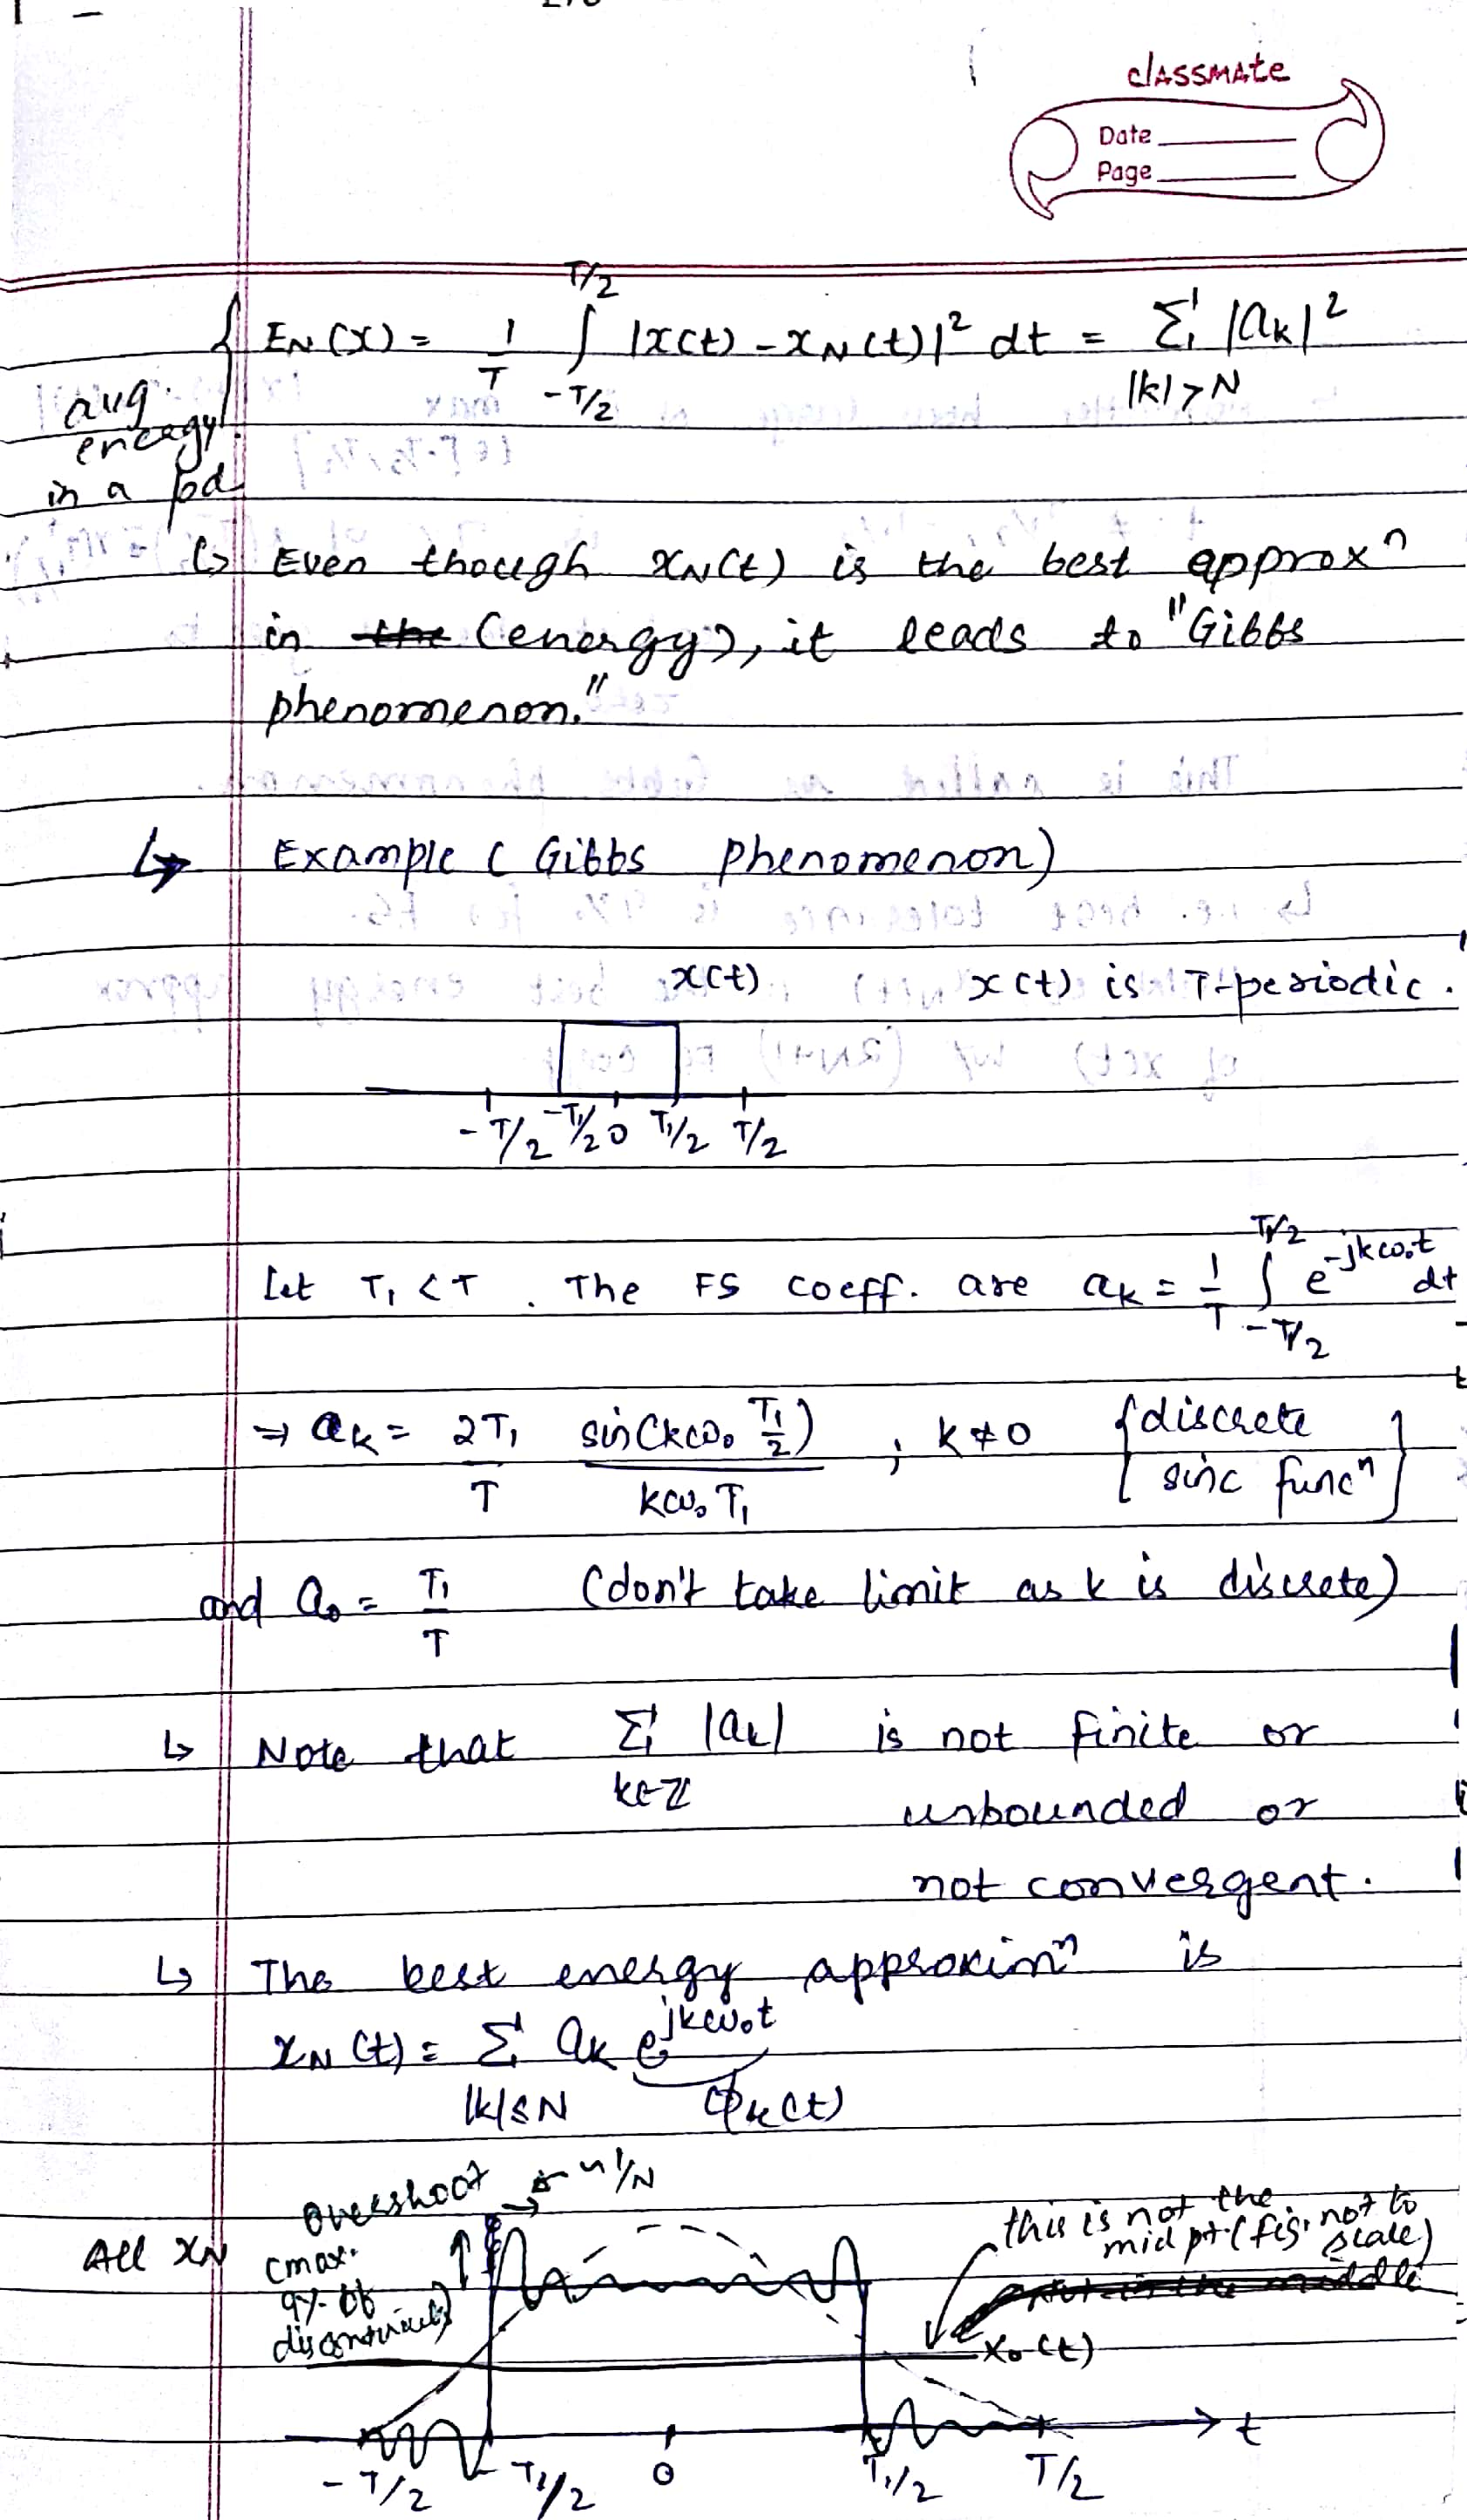 classmate
Date
Page
E_N(x) = 1/T ∫_{-T/2}^{T/2} |x(t) - x_N(t)|² dt = Σ_{|k|>N} |a_k|²
avg.
energy
in a pd
↳ Even though x_N(t) is the best approxⁿ
in the (energy), it leads to "Gibbs
phenomenon."
↳ Example ( Gibbs phenomenon)
x(t) x(t) is T-periodic.
-T/2 -T₁/2 0 T₁/2 T/2
Let T₁ < T . The FS coeff. are a_k = 1/T ∫_{-T₁/2}^{T₁/2} e^{-jkω₀t} dt
⇒ a_k = 2T₁/T sin(kω₀ T₁/2) / kω₀T₁ , k ≠ 0 {discrete
sinc funcⁿ}
and a₀ = T₁/T (don't take limit as k is discrete)
↳ Note that Σ_{k∈Z} |a_k| is not finite or
unbounded or
not convergent.
↳ The best energy approximⁿ is
x_N(t) = Σ_{|k|≤N} a_k e^{jkω₀t}
φ_k(t)
overshoot ~1/N
All x_N
(max.
9% of
discontinuity)
this is not the
mid pt. (fig. not to
scale)
x₀(t)
t
-T/2 -T₁/2 0 T₁/2 T/2